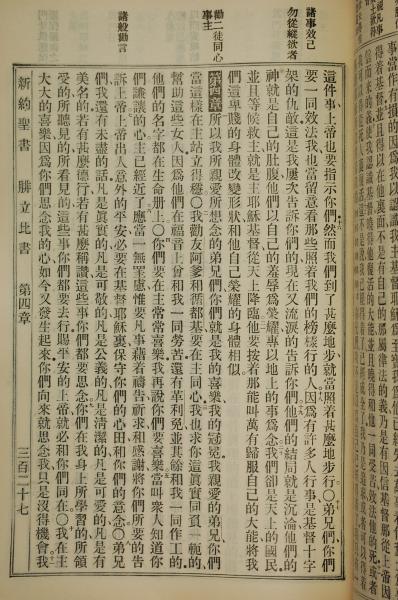 諸事效己
勿從縱欲者
勸二徒同心
事主
諸般勸言
這件事上帝也要指示你們然而我們到了甚麼地步就當照着甚麼地步行○弟兄們你們
要一同效法我也當留意看那些照着我們的榜樣行的人因爲有許多人行事是基督十字
架的仇敵這是我屢次告訴你們的現在又流淚的告訴你們他們的結局就是沉淪他們的
神就是自己的肚腹他們以自己的羞辱爲榮耀專以地上的事爲念我們卻是天上的國民
並且等候救主就是主耶穌基督從天上降臨他要按着那能叫萬有歸服自己的大能將我
們這卑賤的身體改變形狀和他自己榮耀的身體相似
第四章所以我所親愛所想念的弟兄們你們就是我的喜樂我的冠冕我親愛的弟兄你們
當這樣在主站立得穩○我勸友阿爹和循都基要在主同心我也求你這眞實同負一軛的
幫助這些女人因爲他們在福音上曾和我一同勞苦還有革利免並其餘和我一同作工的
他們的名字都在生命册上○你們要在主常常喜樂我再說你們要喜樂當叫衆人知道你
們謙讓的心主已經近了應當一無罣慮惟要凡事藉着禱告祈求和感謝將你們所要的告
訴上帝上帝出人意外的平安必要在基督耶穌裏保守你們的心田和你們的意念○弟兄
們我還有未盡的話凡是眞實的凡是可敬的凡是公義的凡是清潔的凡是可愛的凡是有
美名的若有甚麼德行若有甚麼稱讚這些事你們都要思念你們在我身上所學習的所領
受的所聽見的所看見的這些事你們都要去行賜平安的上帝就必和你們同在○我在主
大大的喜樂因爲你們思念我的心如今又發生起來你們向來就思念我只是沒得機會我
新約聖書 腓立比書 第四章 三百二十七